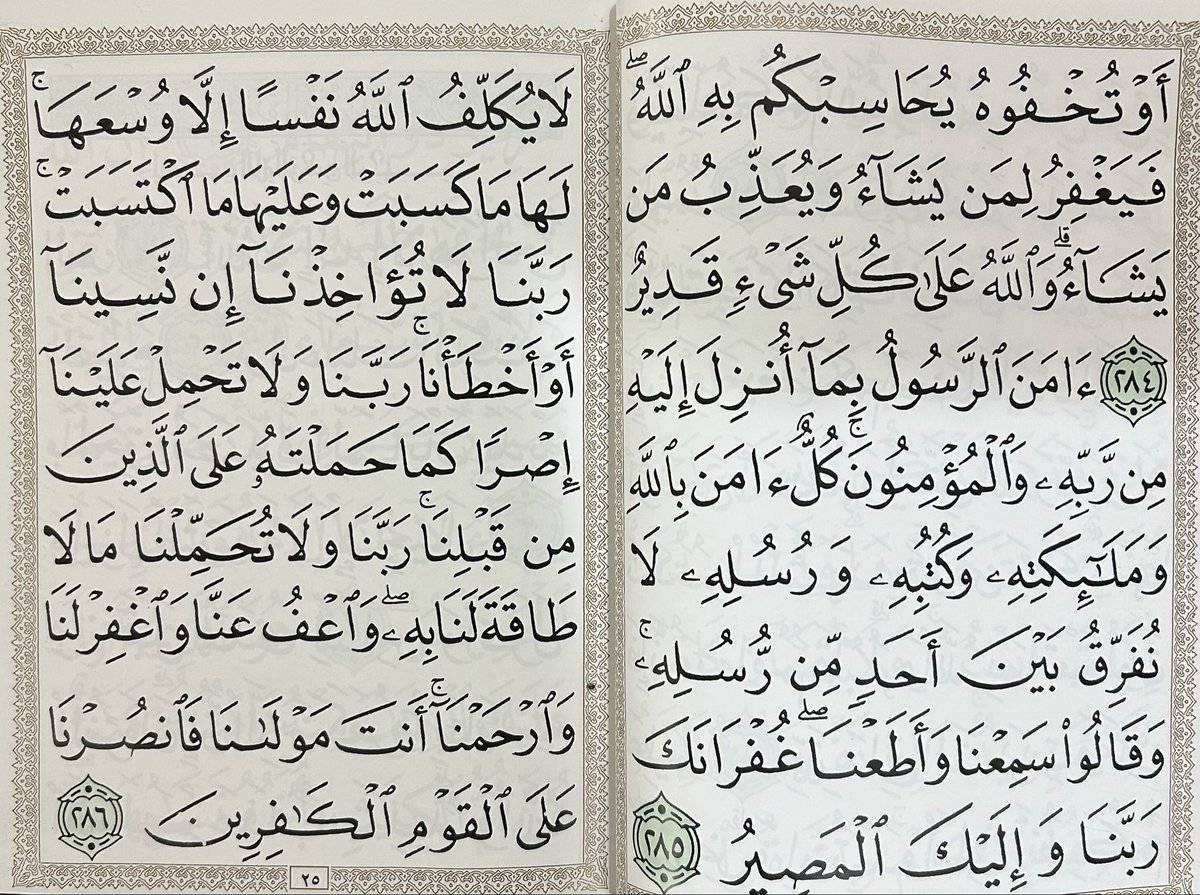 أَوْ تُخْفُوهُ يُحَاسِبْكُم بِهِ ٱللَّهُ ۖ
فَيَغْفِرُ لِمَن يَشَآءُ وَيُعَذِّبُ مَن
يَشَآءُ ۗ وَٱللَّهُ عَلَىٰ كُلِّ شَىْءٍ قَدِيرٌ
٢٨٤ ءَامَنَ ٱلرَّسُولُ بِمَآ أُنزِلَ إِلَيْهِ
مِن رَّبِّهِۦ وَٱلْمُؤْمِنُونَ ۚ كُلٌّ ءَامَنَ بِٱللَّهِ
وَمَلَـٰٓئِكَتِهِۦ وَكُتُبِهِۦ وَرُسُلِهِۦ لَا
نُفَرِّقُ بَيْنَ أَحَدٍ مِّن رُّسُلِهِۦ ۚ
وَقَالُوا۟ سَمِعْنَا وَأَطَعْنَا ۖ غُفْرَانَكَ
رَبَّنَا وَإِلَيْكَ ٱلْمَصِيرُ ٢٨٥
لَا يُكَلِّفُ ٱللَّهُ نَفْسًا إِلَّا وُسْعَهَا ۚ
لَهَا مَا كَسَبَتْ وَعَلَيْهَا مَا ٱكْتَسَبَتْ ۚ
رَبَّنَا لَا تُؤَاخِذْنَآ إِن نَّسِينَآ
أَوْ أَخْطَأْنَا ۚ رَبَّنَا وَلَا تَحْمِلْ عَلَيْنَآ
إِصْرًا كَمَا حَمَلْتَهُۥ عَلَى ٱلَّذِينَ
مِن قَبْلِنَا ۚ رَبَّنَا وَلَا تُحَمِّلْنَا مَا لَا
طَاقَةَ لَنَا بِهِۦ ۖ وَٱعْفُ عَنَّا وَٱغْفِرْ لَنَا
وَٱرْحَمْنَآ ۚ أَنتَ مَوْلَىٰنَا فَٱنصُرْنَا
عَلَى ٱلْقَوْمِ ٱلْكَـٰفِرِينَ ٢٨٦
٢٥